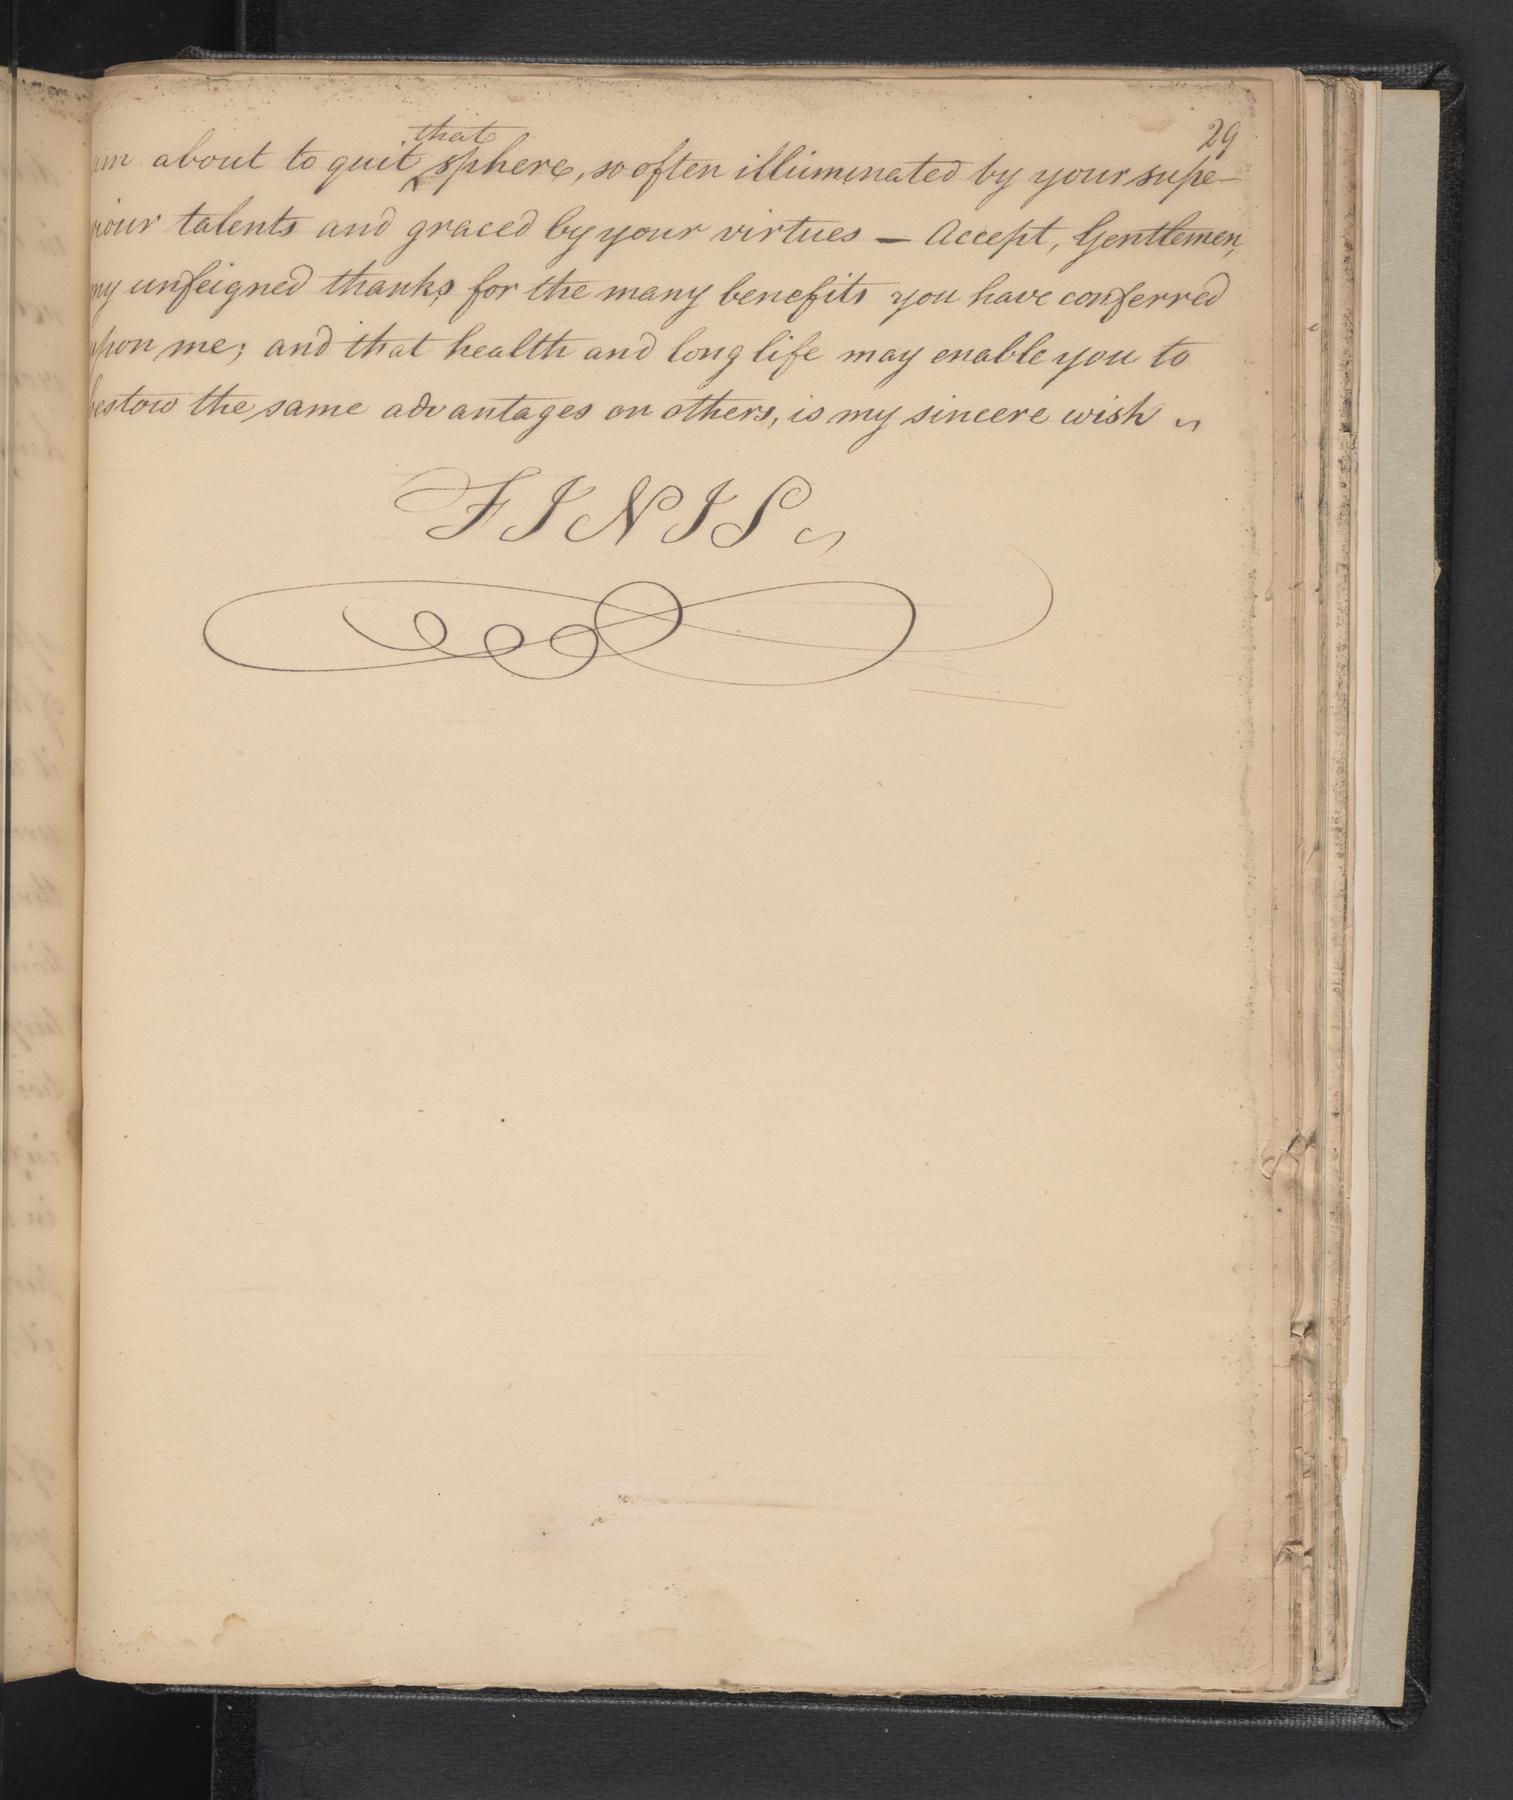 29
am about to quit that sphere, so often illuminated by your supe-
riour talents and graced by your virtues — Accept, Gentlemen,
my unfeigned thanks for the many benefits you have conferred
upon me; and that health and long life may enable you to
bestow the same advantages on others, is my sincere wish
FINIS